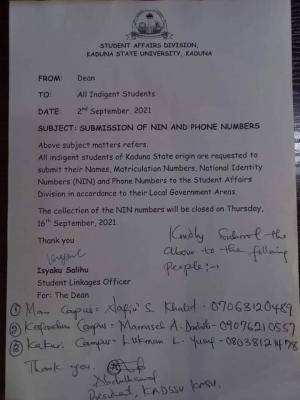 STUDENT AFFAIRS DIVISION,
KADUNA STATE UNIVERSITY, KADUNA
FROM: Dean
TO: All Indigent Students
DATE: 2nd September, 2021
SUBJECT: SUBMISSION OF NIN AND PHONE NUMBERS
Above subject matters refers.
All indigent students of Kaduna State origin are requested to
submit their Names, Matriculation Numbers, National Identity
Numbers (NIN) and Phone Numbers to the Student Affairs
Division in accordance to their Local Government Areas.
The collection of the NIN numbers will be closed on Thursday,
16th September, 2021.
Thank you
Kindly Submit the
above to the following
People:-
Isyaku Salihu
Student Linkages Officer
For: The Dean
① Main Campus = S. Khalid - 07063120489
② Kafanchan Campus = A. - 09076210557
③ Campus - Lukman L. Yusuf - 08038121478
Thank you.
Abdulhamid
President, KADSSU KASU.